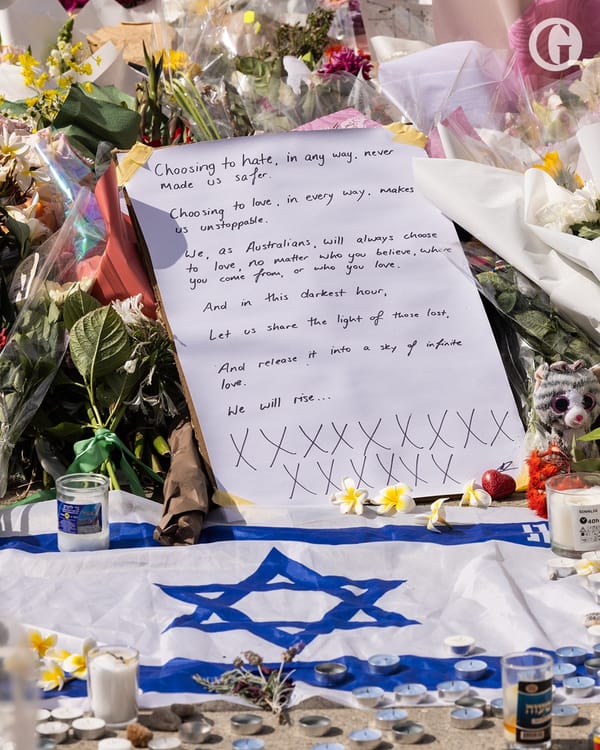 G
Choosing to hate, in any way, never
made us safer.
Choosing to love, in every way, makes
us unstoppable.
We, as Australians, will always choose
to love, no matter who you believe, where
you come from, or who you love.
And in this darkest hour,
Let us share the light of those lost,
And release it into a sky of infinite
love.
We will rise...
XXXXXXXXX
XXXXXX